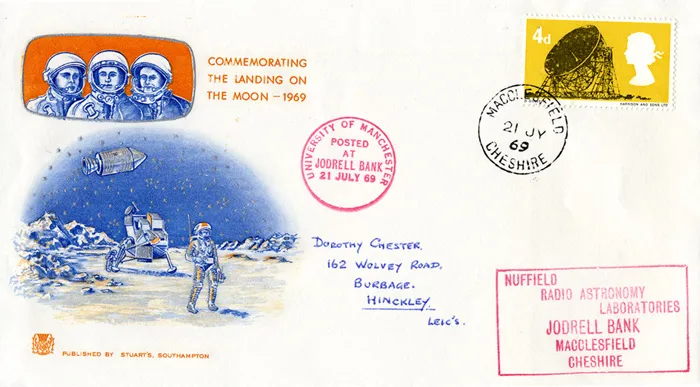 COMMEMORATING
THE LANDING ON
THE MOON – 1969
4d
HARRISON AND SONS LTD
MACCLESFIELD
21 JY
69
CHESHIRE
UNIVERSITY OF MANCHESTER
POSTED
AT
JODRELL BANK
21 JULY 69
Dorothy Chester.
162 Wolvey Road,
Burbage.
Hinckley.
Leic's.
NUFFIELD
RADIO ASTRONOMY
LABORATORIES
JODRELL BANK
MACCLESFIELD
CHESHIRE
PUBLISHED BY STUART'S, SOUTHAMPTON